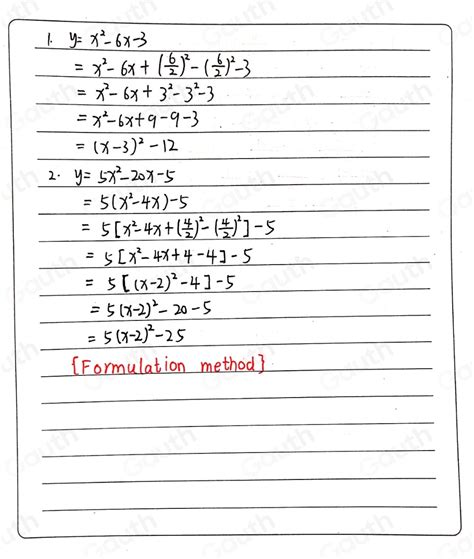 1. y = x² - 6x - 3
= x² - 6x + (6/2)² - (6/2)² - 3
= x² - 6x + 3² - 3² - 3
= x² - 6x + 9 - 9 - 3
= (x - 3)² - 12
2. y = 5x² - 20x - 5
= 5(x² - 4x) - 5
= 5[x² - 4x + (4/2)² - (4/2)²] - 5
= 5[x² - 4x + 4 - 4] - 5
= 5[(x - 2)² - 4] - 5
= 5(x - 2)² - 20 - 5
= 5(x - 2)² - 25
{Formulation method}